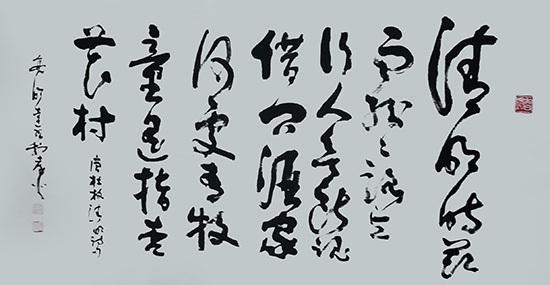 清明时节
雨纷纷路上
行人欲断魂
借问酒家
何处有牧
童遥指杏
花村
唐杜牧清明诗